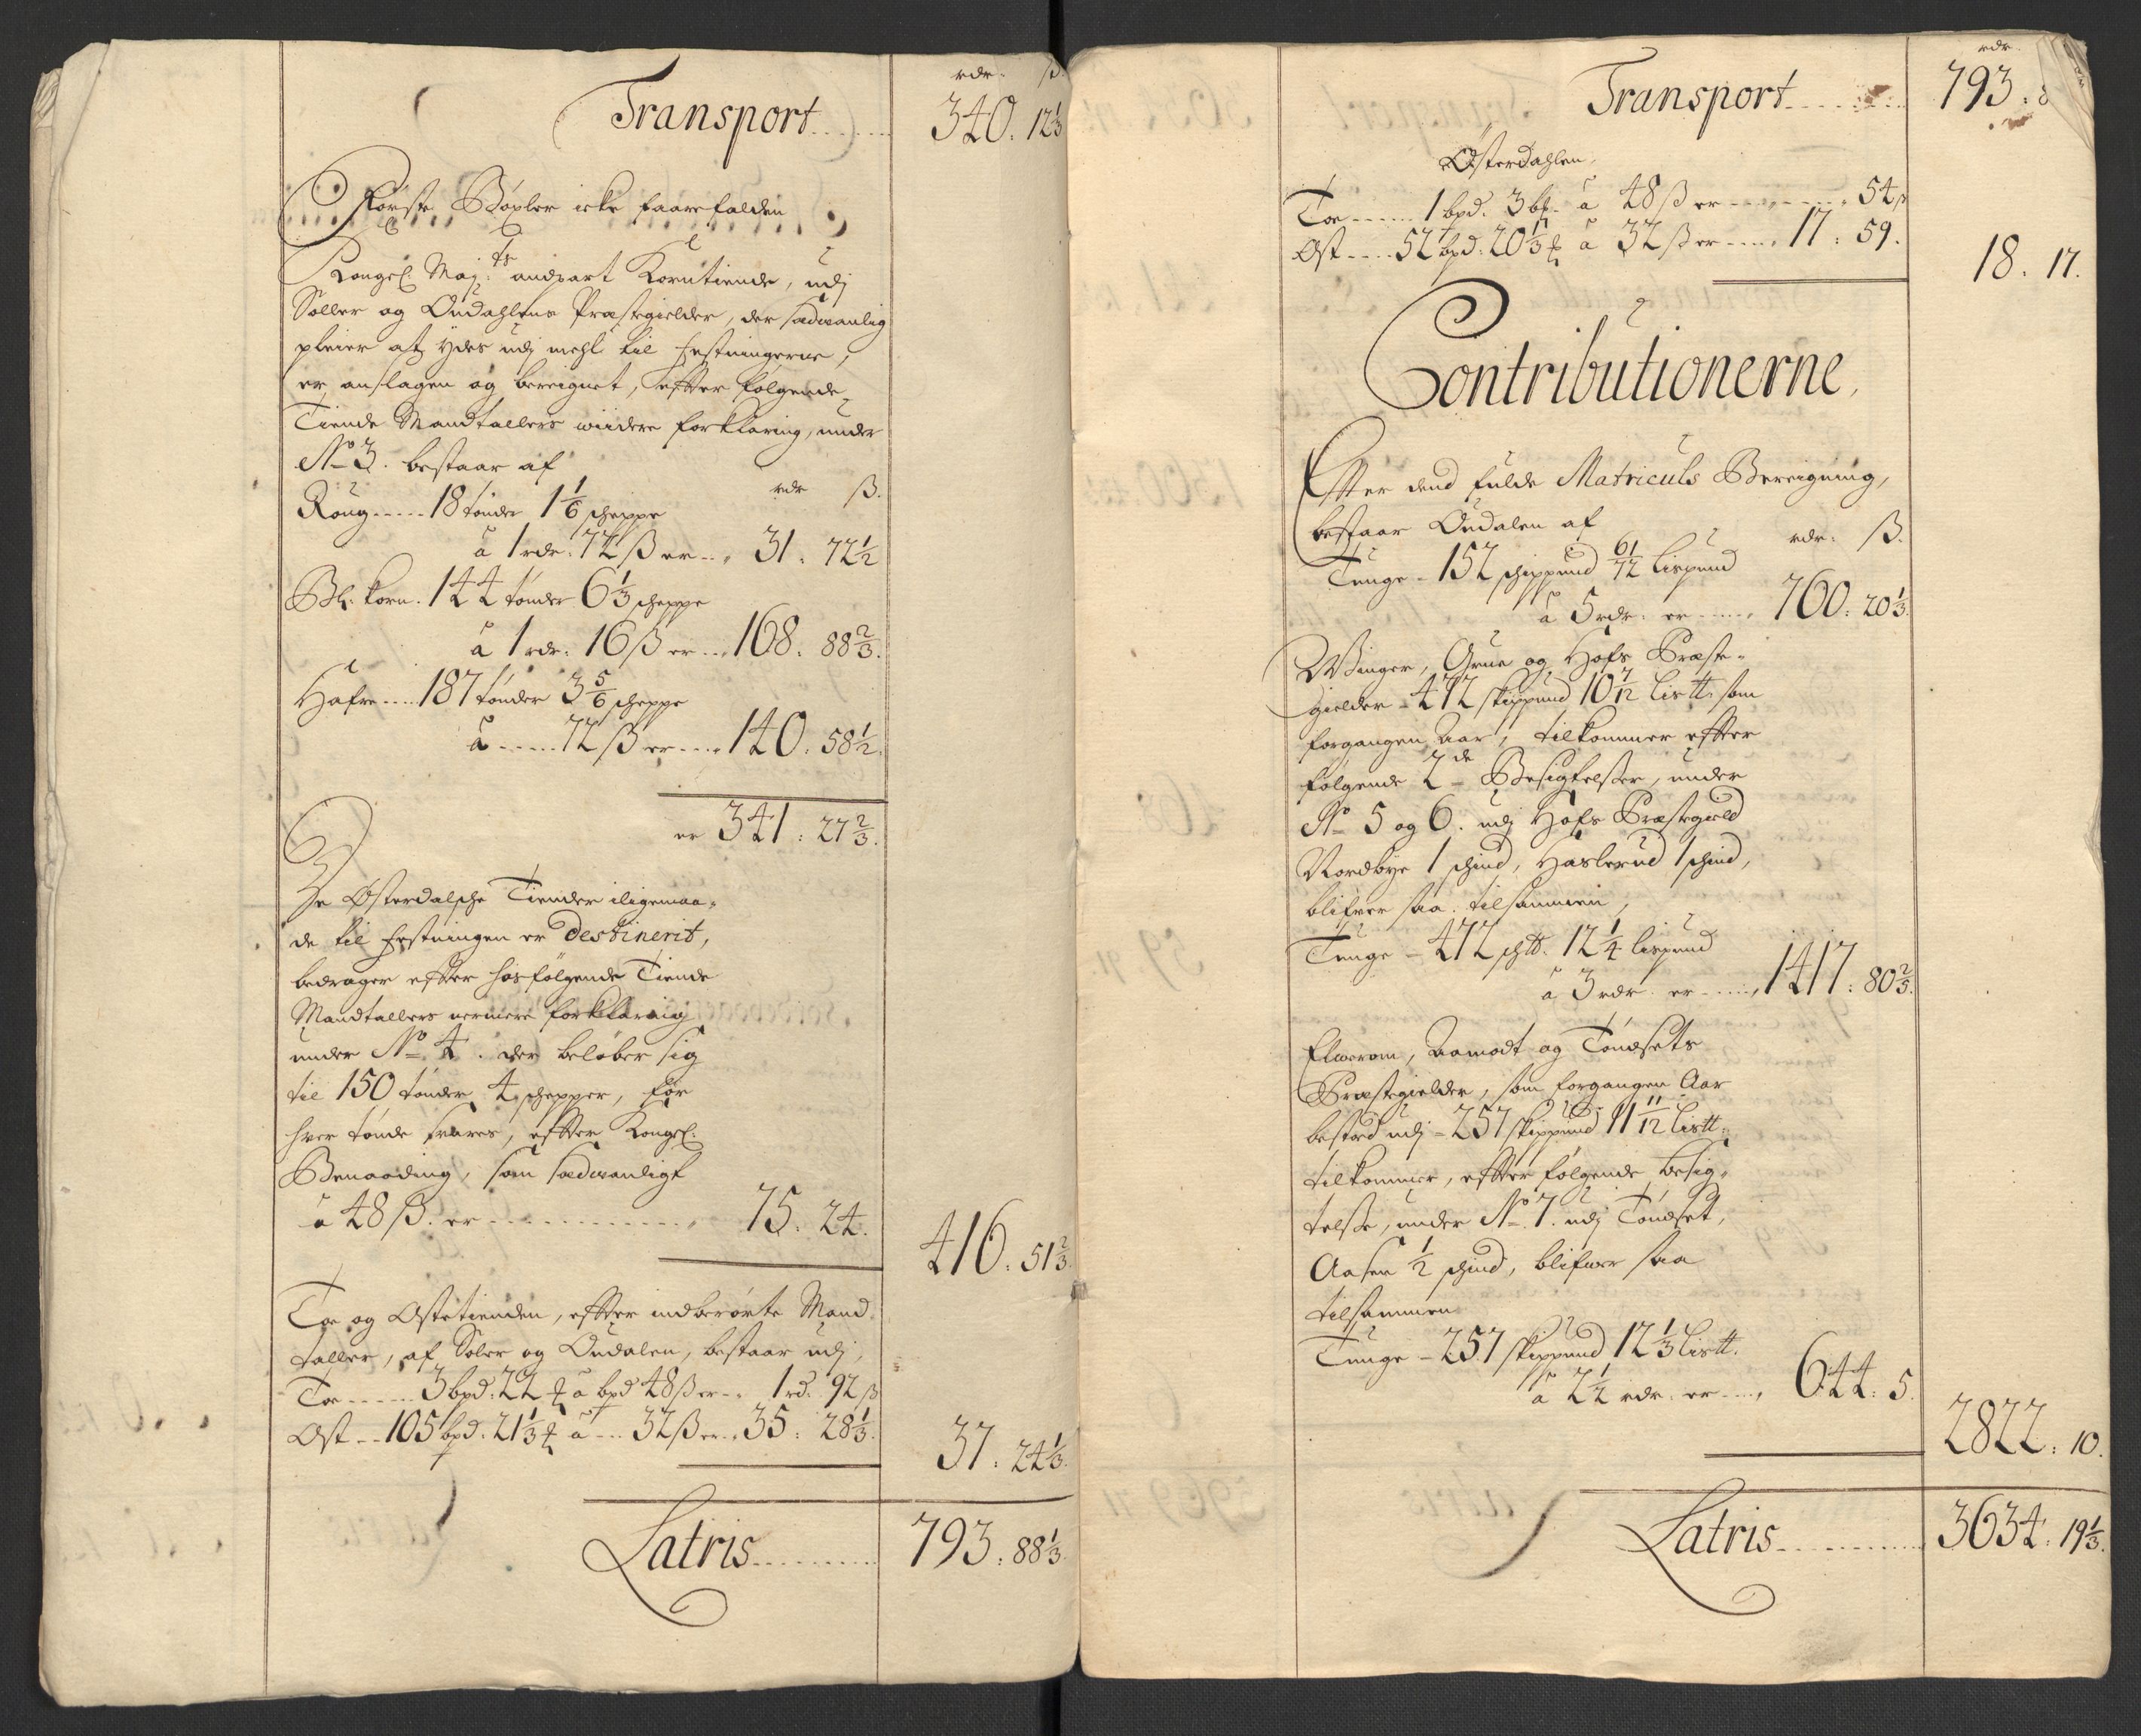 rdr. ß.
Transport........ 340. 12⅓
Første Böxler icke faarefalden
Kongel. Maj:ts andpart Korntiende, udj
Soller og Oudahlens Præstegielder, der sædvanlig
pleier at ydes udj mehl til Festningerne,
er anslagen og bereignet, efter følgende
Tiende Mandtallers widere forklaring, under
No 3. bestaar af
rdr ß.
Roug.....18 tønder 1⅙ scheppe
à 1 rdr. 72 ß er... 31. 72½
Bl. korn. 144 tønder 6⅓ scheppe
à 1 rdr. 16 ß er... 168. 88⅔.
Hafre....187 tønder 3⅚ scheppe
à.....72 ß er....140. 58½.
er 341. 27⅔.
De Østerdalsche Tiender iligemaa-
de til Festningen er destinerit,
bedrager efter hosfølgende Tiende
Mandtallers nermere forklaring
under No 4. der beløber sig
til 150 tønder 4 schepper, for
hver tønde svares, efter Kongel:
Benaading, som sædvanligt
à 48 ß. er.............. 75. 24.
416. 51⅔.
Toe og Ostetienden, efter indberørte Mand-
taller, af Soler og Oudalen, bestaar udj,
Toe.......3 bpd. 22 ℔ à bpd 48 ß er... 1 rd. 92 ß
Ost...105 bpd. 21⅓ ℔ à... 32 ß er.. 35. 28⅓.
37. 24⅓.
Latris.......... 793. 88⅓.
rdr.
Transport......... 793. 8
Østerdahlen.
Toe......1 bpd. 3 b℔. à 48 ß er........ 54 ß
Ost....52 bpd. 20⅓ ℔ à 32 ß er.... 17. 59.
18. 17.
Contributionerne.
Efter dend fulde Matriculs Bereigning,
bestaar Oudalen af
rdr. ß.
Tunge - 152 schippund 61/72 lispund
à 5 rdr. er...... 760. 20⅓.
Winger, Grue og Hofs Præste-
gielder - 472 skippund 10 7/12 List℔. som
forgangen Aar, tilkommer efter
følgende 2de Besigtelser, under
No 5 og 6. udj Hofs Præstegield
Nordbye 1 schind, Haslerud 1 schind,
blifver saa tilsammen,
Tunge - 472 sch℔. 12¼ lispund
à 3 rdr. er...... 1417. 80⅖.
Elverom, Aamodt og Tøndsets
Præstegielder, som forgangen Aar
bestod udj - 257 skippund 11 11/12 List℔.
tilkommer, efter følgende besig-
telse, under No 7. udj Tøndset,
Aasen ½ schind, blifver saa
tilsammen
Tunge - 257 skippund 12⅓ List℔.
à 2½ rdr. er.... 644. 5.
2822. 10.
Latris............ 3634. 19⅓.